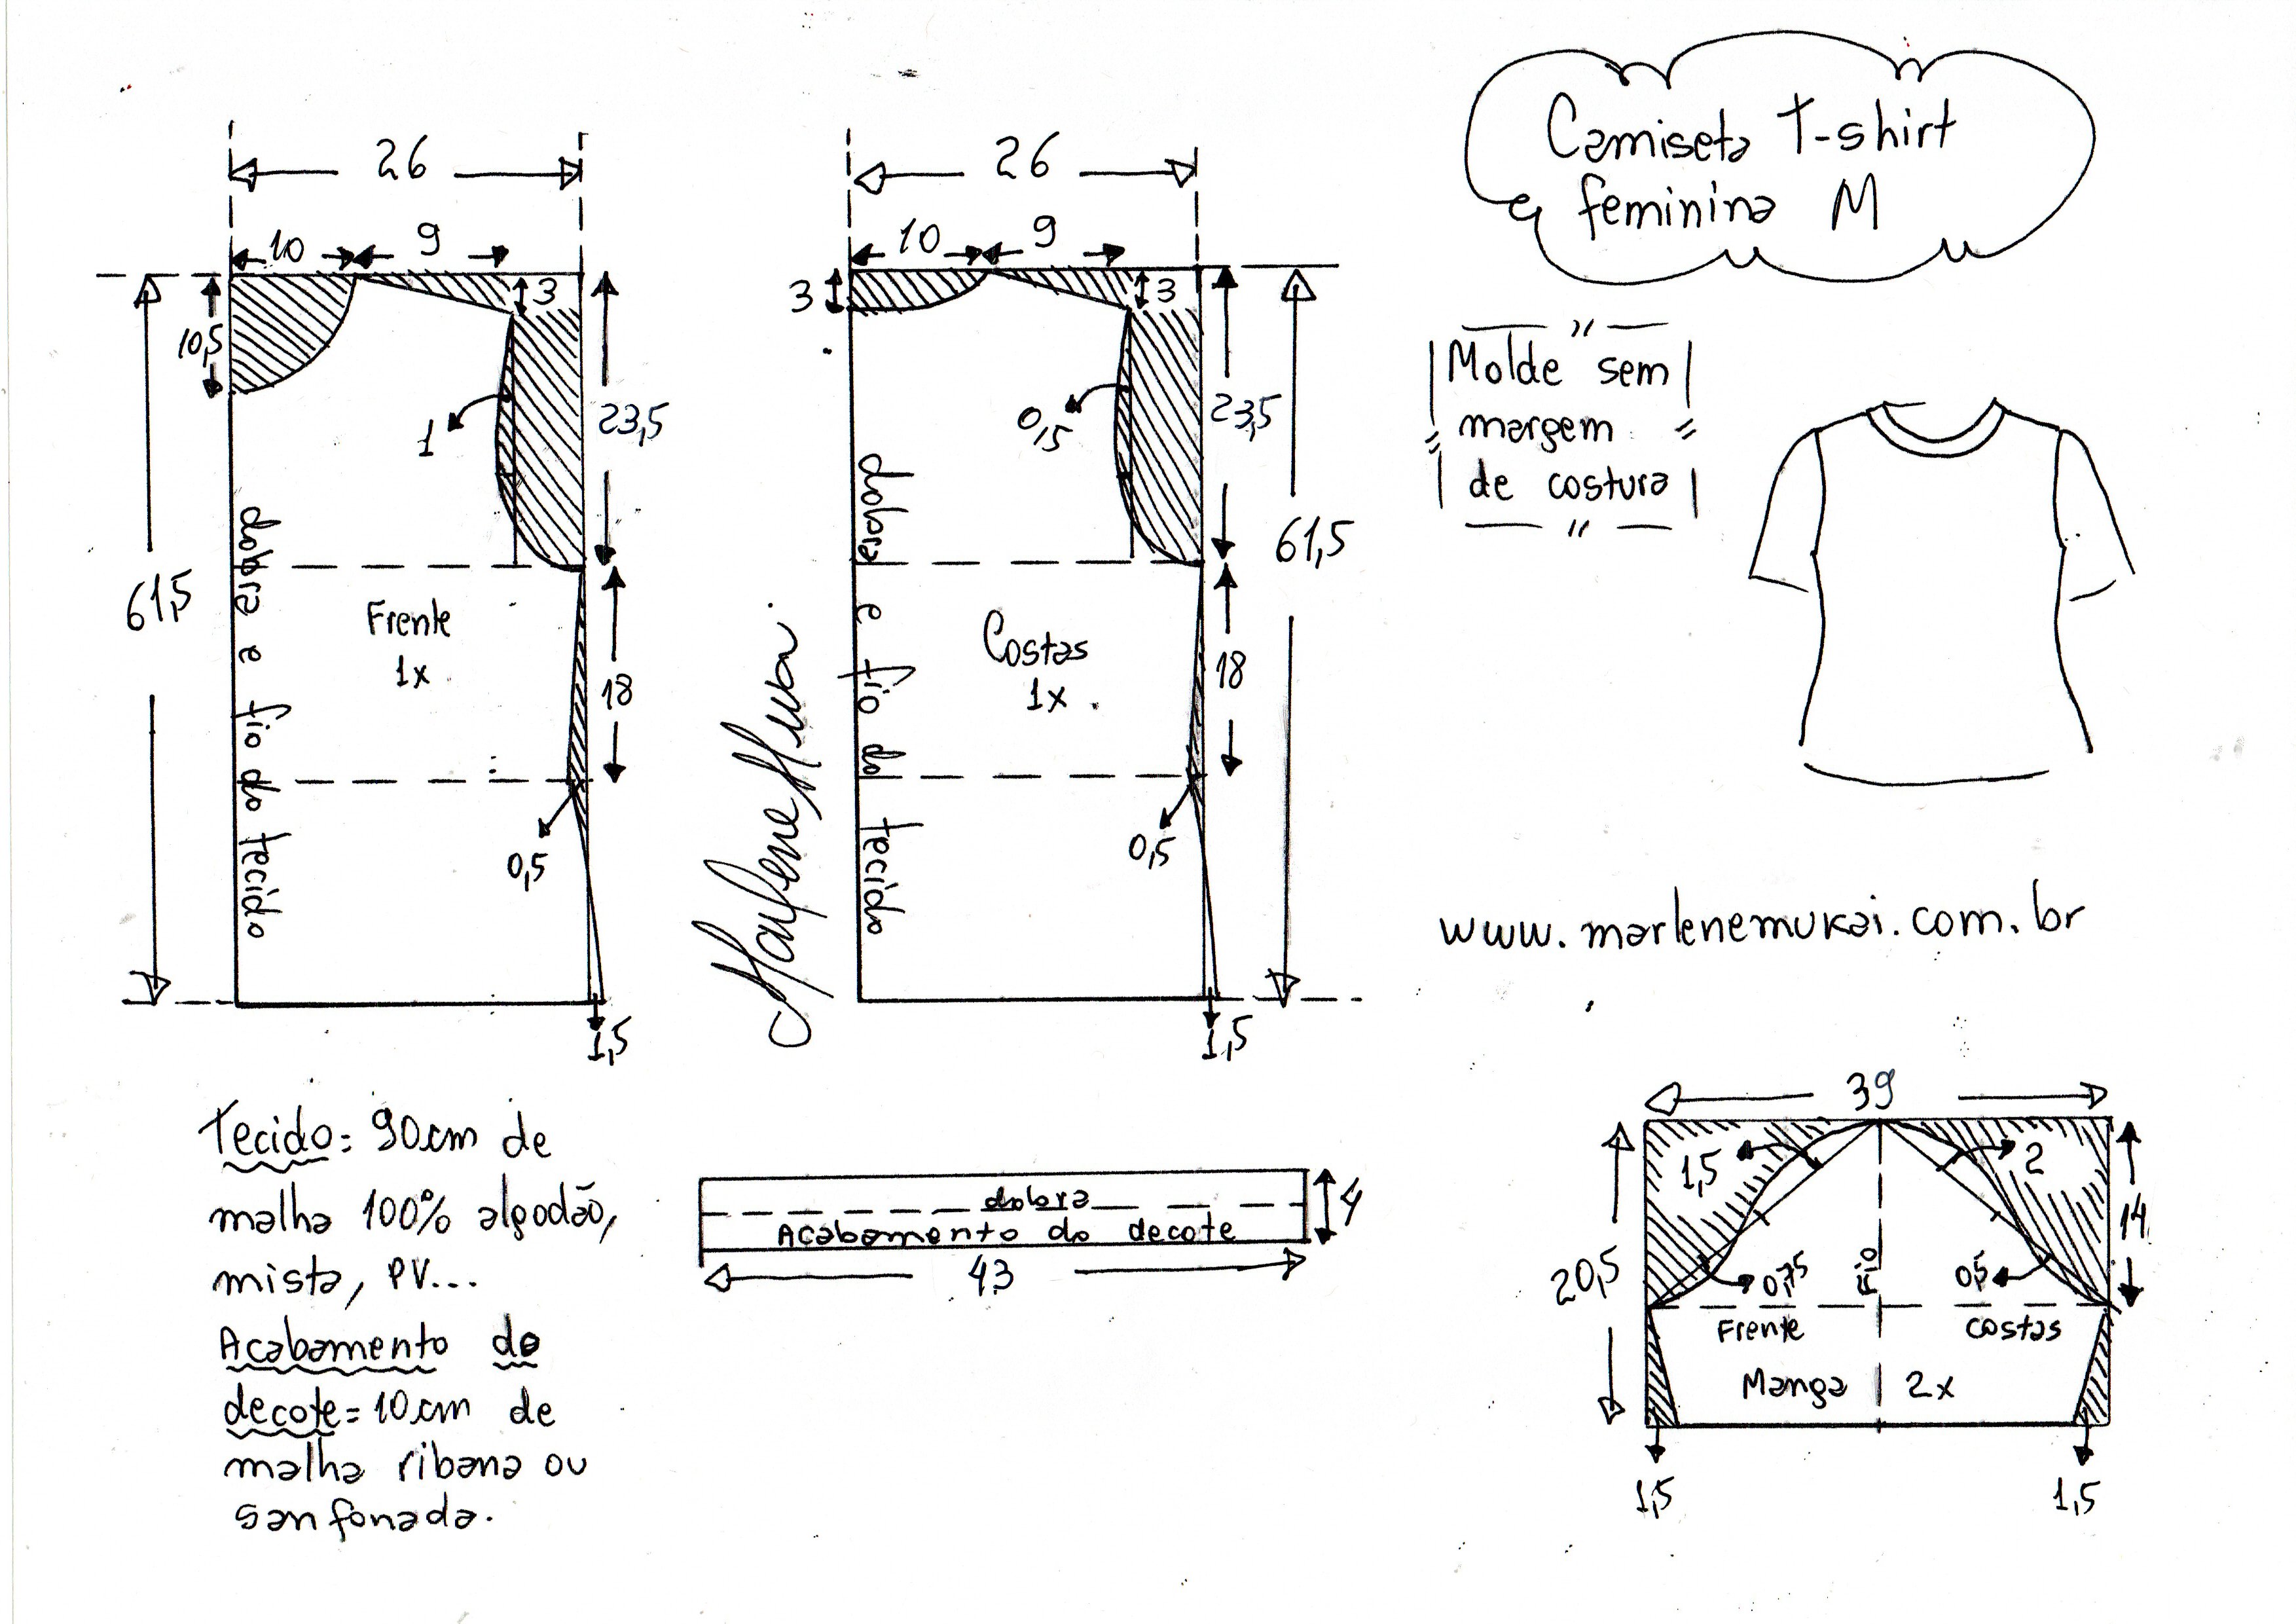 Camiseta T-shirt
feminina M
Molde sem
margem
de costura
26
10
9
3
10,5
1
23,5
61,5
18
0,5
1,5
dobra e fio do tecido
Frente
1x
26
10
9
3
3
0,5
23,5
61,5
18
0,5
1,5
dobra e fio do tecido
Costas
1x
Marlene Mukai
www.marlenemukai.com.br
Tecido: 90cm de
malha 100% algodão,
mista, PV...
Acabamento do
decote = 10cm de
malha ribana ou
sanfonada.
dobra
Acabamento do decote
4
43
39
1,5
2
14
20,5
0,75
Fio
0,5
Frente
costas
Manga 2x
1,5
1,5